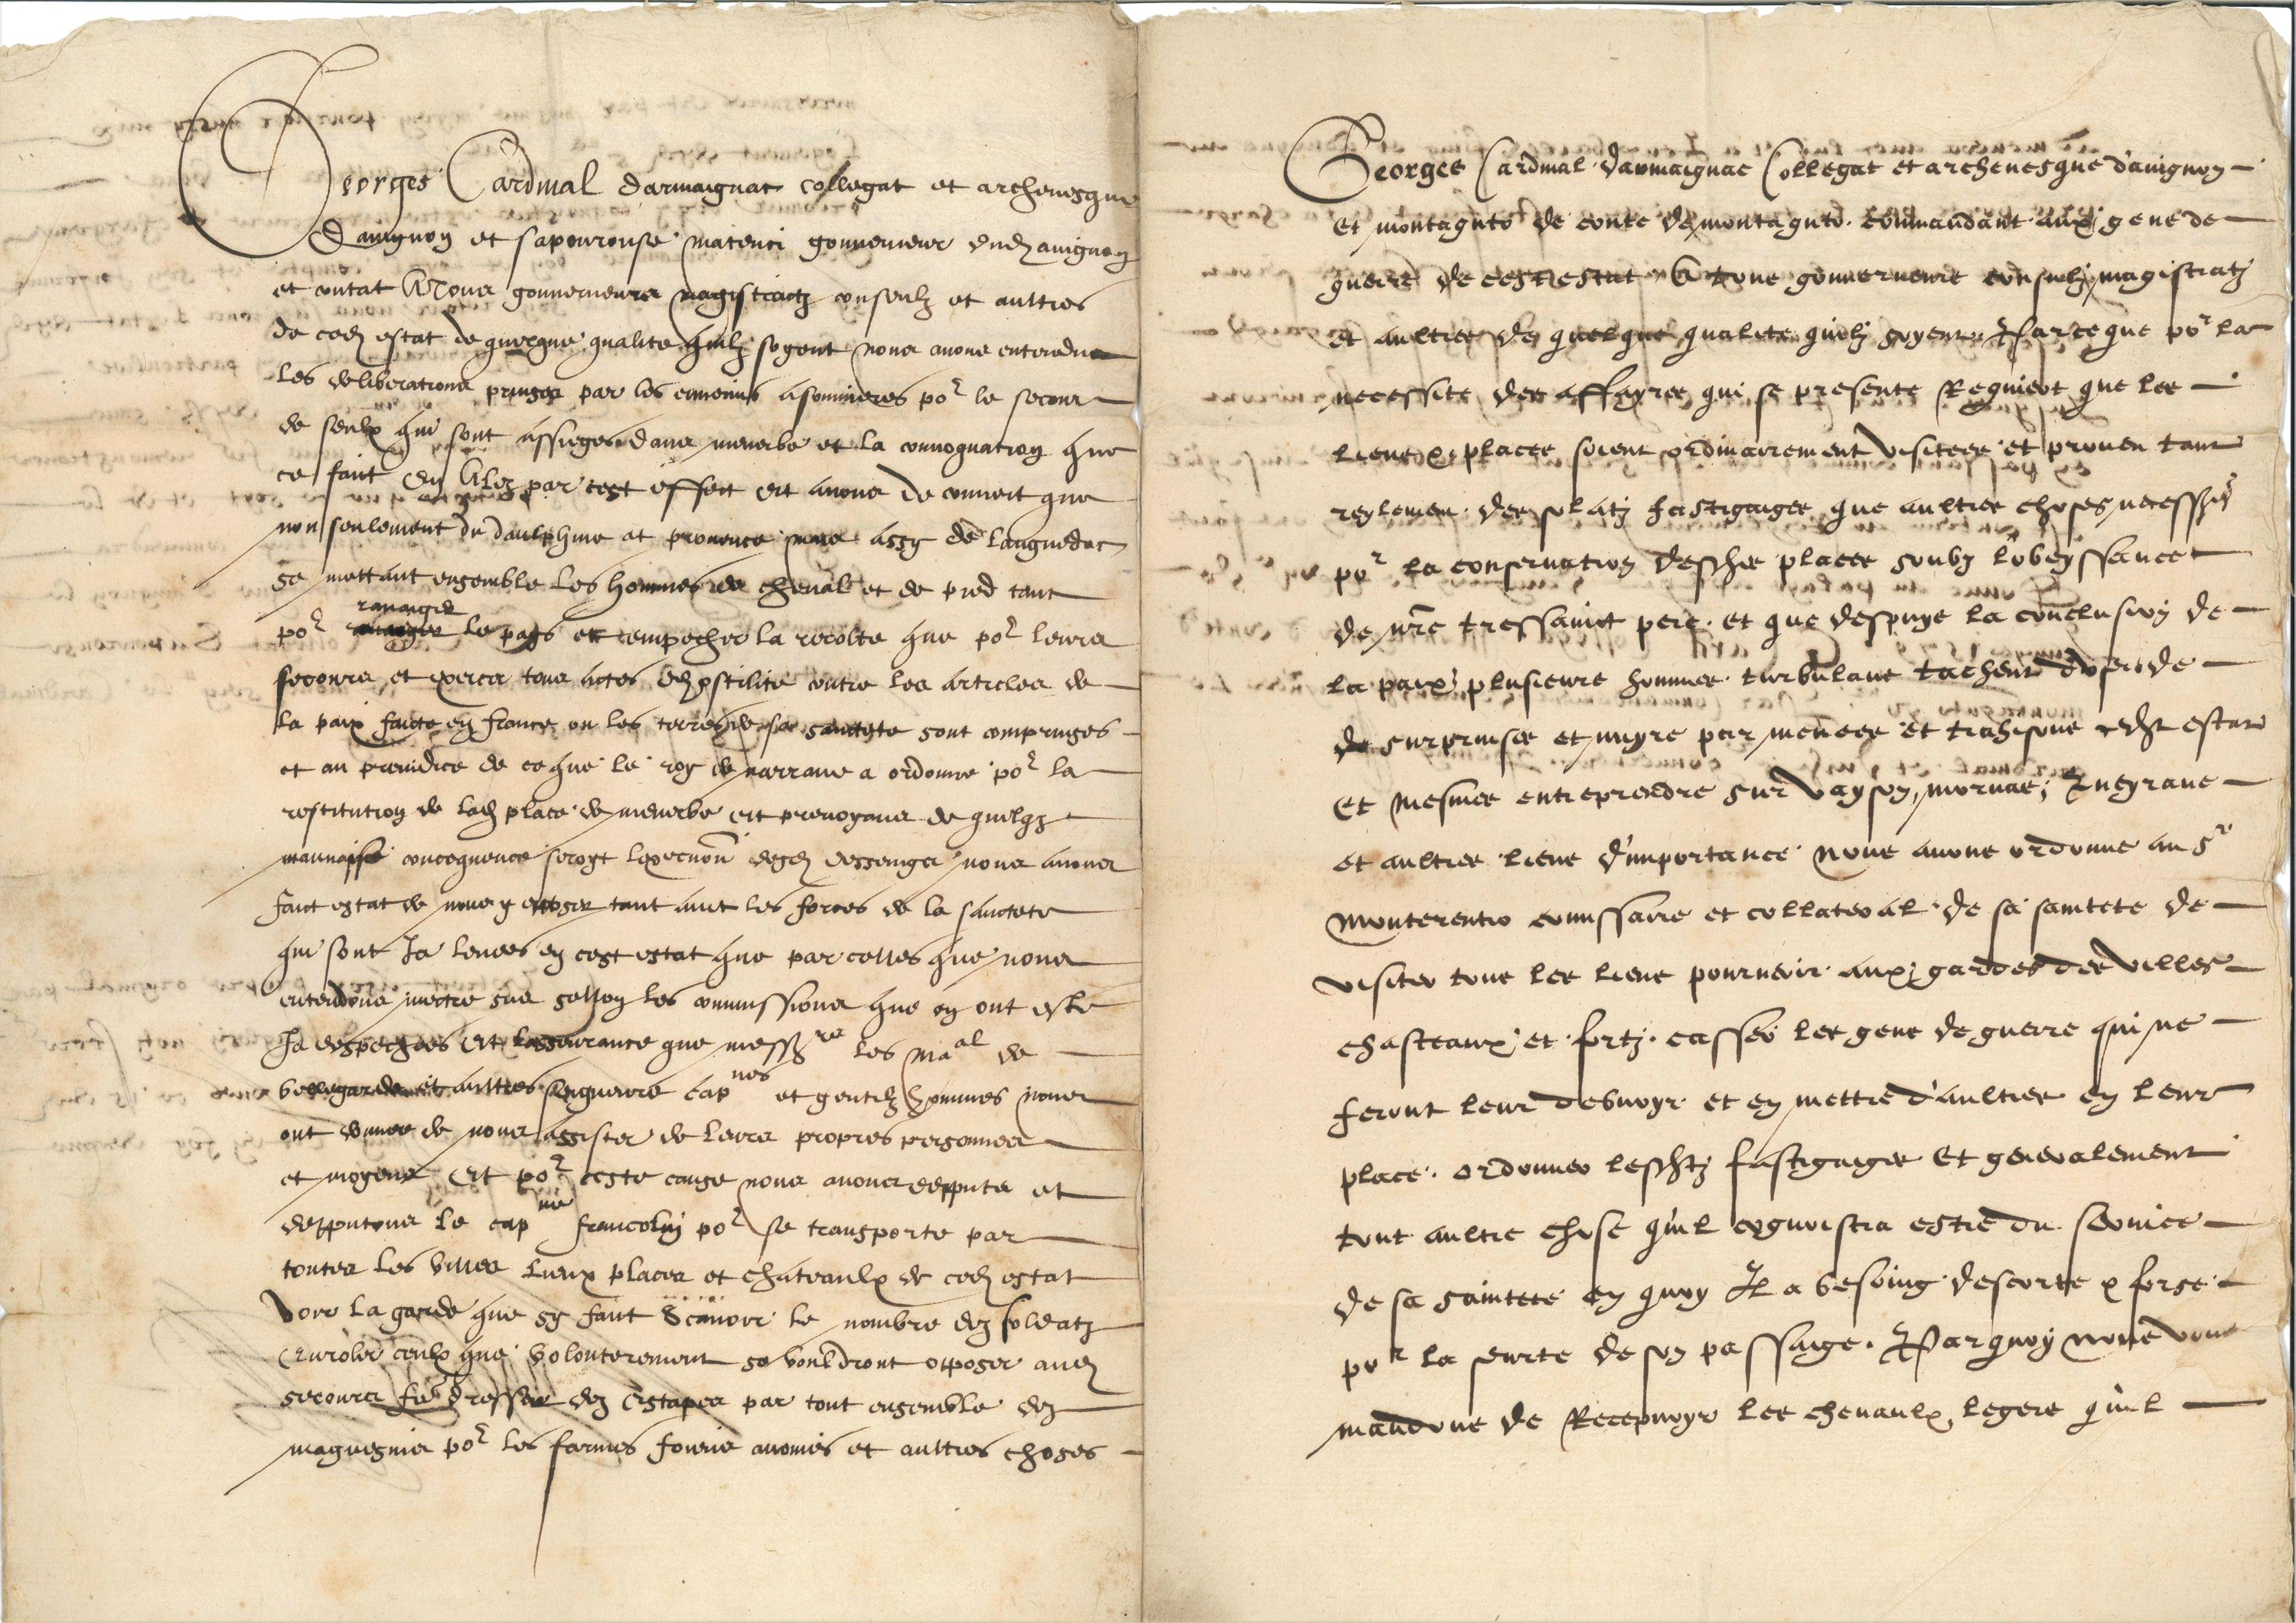 Georges Cardinal darmaignac collegat et archevesque
Davignon et matenci gouverneur audz avignon
et contat A tous gouverneurs magistratz consulz et aultres
de cedz estat de quelque qualite quilz soyent nous avons entendue
les deliberations prinses par les ennemis po.r le secour
de seulx qui sont assieges dans menerbe et la convoquation que
ce faict en Alez par cest effect Et avons de couvert que
non seulement de daulphine et provence mais assy de languedoc
se mettant ensemble les hommes de cheval et de pied tant
po.r ravaiger le pays et empecher la recolte que po.r leurs
secours et exercer tous actes dhostilite contre les articles de
la paix faicte en france ou les terres de sa sanctete sont comprinses
et au preiudice de ce que le roy de navarrave a ordonne po.r la
restitution de ladz place de menerbe Et prevoyans de quelqz
mauvaise concequence seroyt lexecuon desdz desseings nous avons
faict estat de nous y oposer tant avec les forces de la sanctete
qui sont Ja levees en cest estat que par celles que nous
entendons mectre sus sellon les commissions que en ont este
Ja despechees Et lasseurance que mess.rs les ma.al de
bellegarde et aultres seigneurs cap.nes et gentilz hommes nous
ont donnee de nous assister de leurs propres personnes
et moyens Et po.r ceste cause nous avons depputer et
depputons le cap.ne francolin po.r se transporte par
toutes les villes lieux places et chateaulx de cedz estat
voir la garde que sy faict Scavoir le nombre dez soldatz
Enroler ceulx que volonterement se vouldront opposer audz
secours fe.r dresser dez Estapes par tout ensemble dez
maguesins po.r les farines fourie avoines et aultres choses
Georges Cardinal darmaignac Collegat et archevesque d'avignon
et montaguto de conte de montaguto commandant aux gens de
guerre de cest estat A tous gouverneurs consulz magistratz
et aultres de quelque qualite quilz soyent Parceque po.r la
necessite des affayres qui se presente Requiert que les
lieux & places soient ordinairement visitees et proveu tant
reglemen des solatz fastigages que aultres choses necess.res
po.r la conservation desdtes places soubz l'obeyssance
de n.re tressainct pere et que despuys la conclusion de
la paix plusieurs hommes turbulans tachent duser de
de surprinses et nuyre par menees et trahisons cedt estat
Et mesmes entreprendre sur vayson, mornas, Queyrane
et aultres lieus d'importance nous avons ordonne au s.r
monterentio comissaire et collateral de sa saintete de
visiter tous les lieus pourveoir aux gardes des villes
chasteaux et fortz casser les gens de guerre qui ne
feront leur debvoyr et en mettre d'aultres en leur
place ordonner lesdtz fastigages Et generalement
tout aultre chose quil cognoistra estre du service
de sa saintete en quoy Il a besoing descorte & force
po.r la seurte de son passaige. Parquoy nous vous
mandons de Recepvoyr les chevaulx legers quil